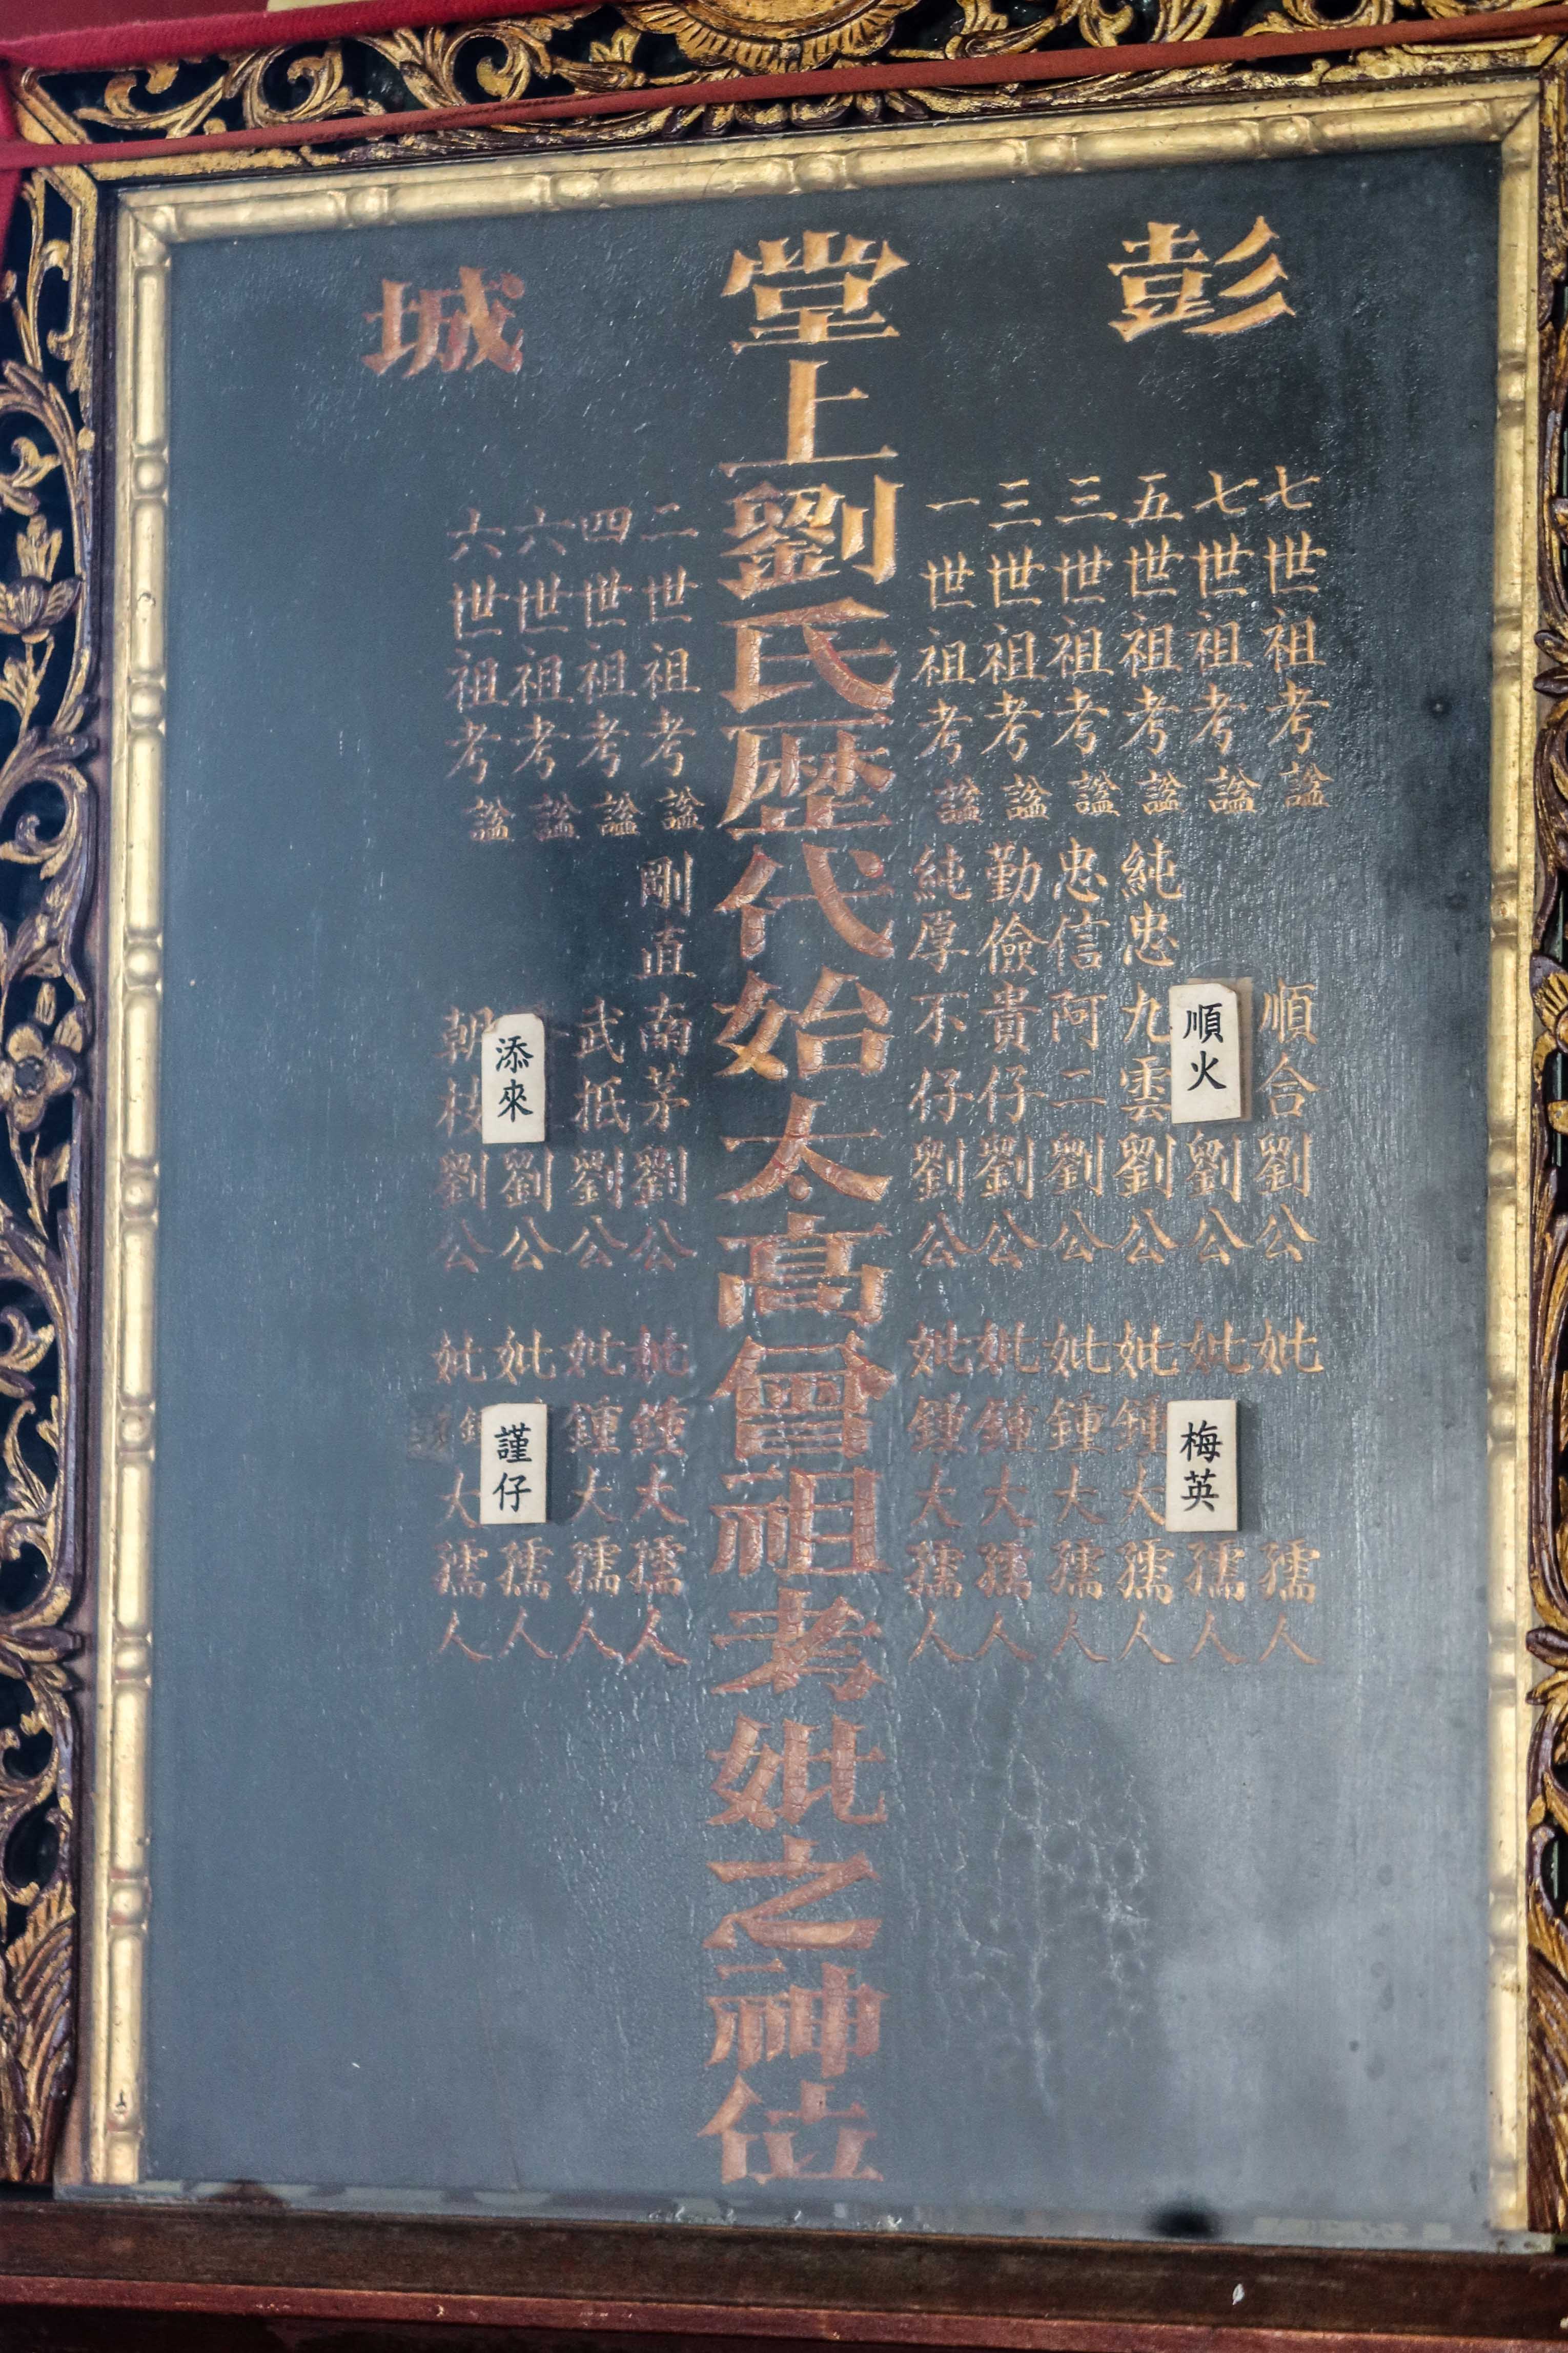 彭城
七世祖考謚順合劉公妣孺人
七世祖考謚順火劉公妣梅英孺人
五世祖考謚純忠九雲劉公妣鍾大孺人
三世祖考謚忠信阿二劉公妣鍾大孺人
三世祖考謚勤儉貴仔劉公妣鍾大孺人
一世祖考謚純厚不仔劉公妣鍾大孺人
堂上劉氏歴代始太髙曾祖考妣之神位
二世祖考謚剛直南茅劉公妣鍾大孺人
四世祖考謚武抵劉公妣鍾大孺人
六世祖考謚添來劉公妣謹仔孺人
六世祖考謚朝枝劉公妣鍾大孺人